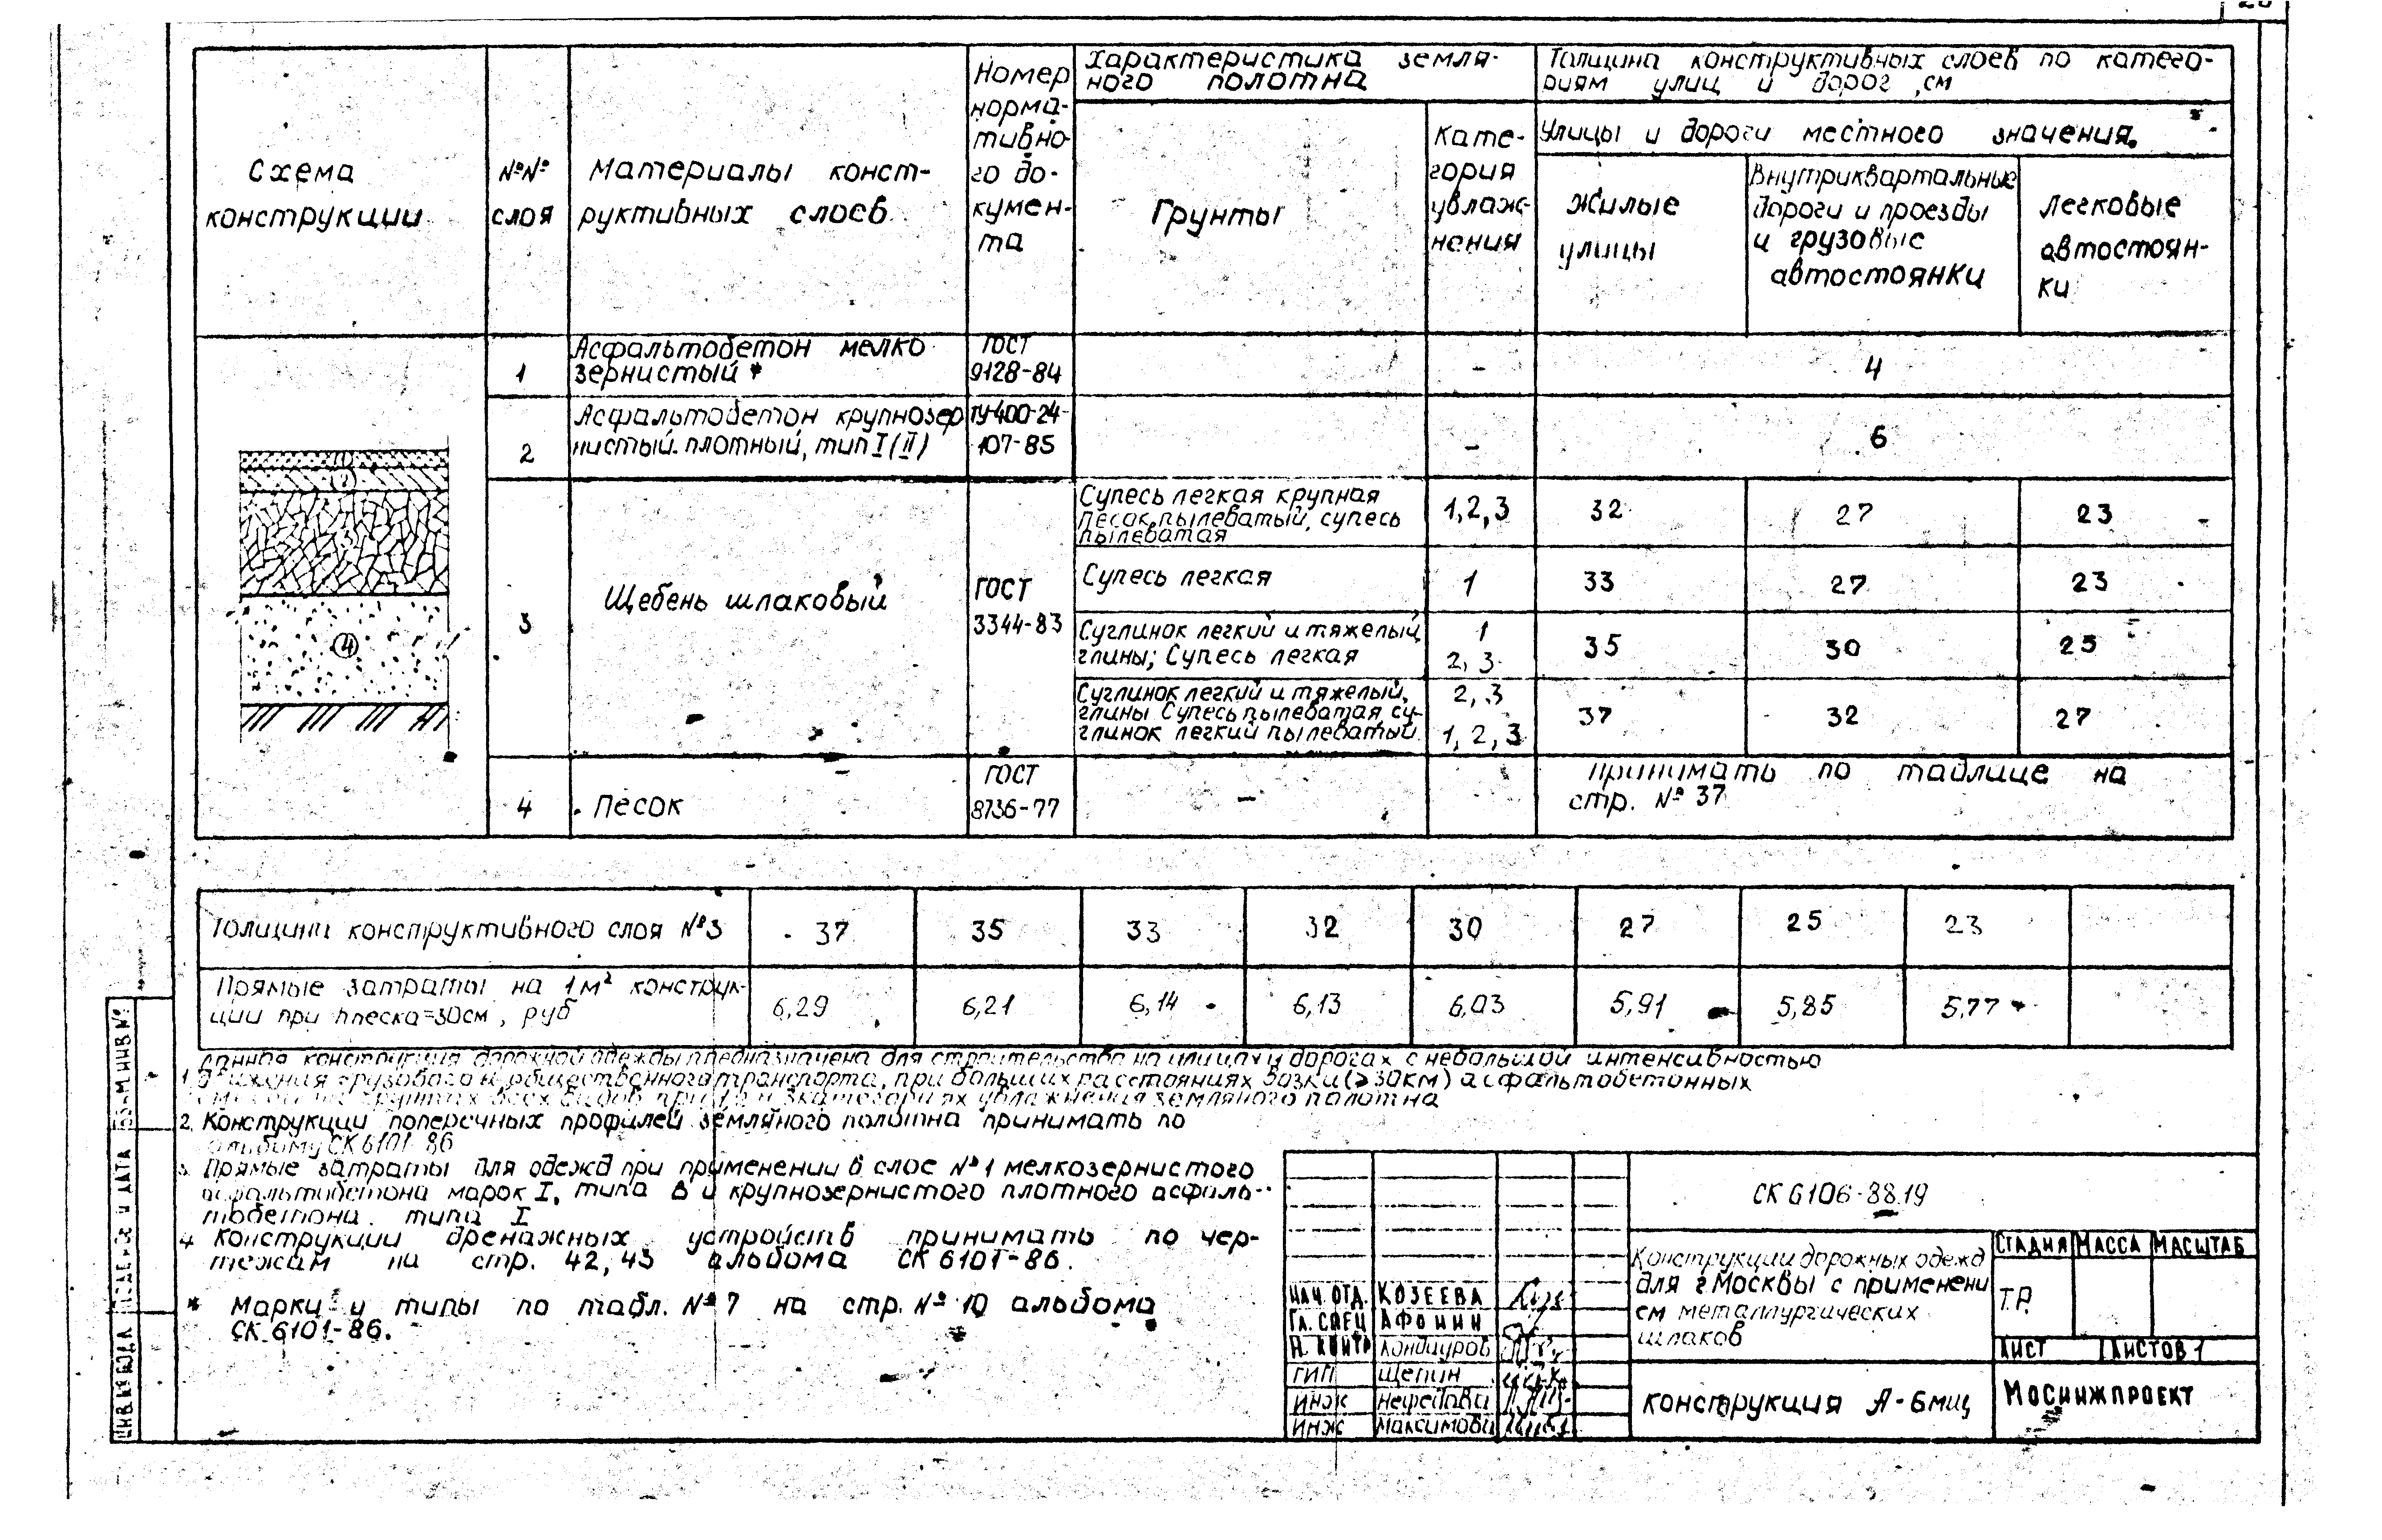 Схема
конструкции
№№
слоя
Материалы конст-
руктивных слоев
Номер
норма-
тивно
го до-
кумен-
та
Характеристика земля-
ного полотна
Грунты
Кате-
гория
увлаж-
нения
Толщина конструктивных слоев по катего-
риям улиц и дорог, см
Улицы и дороги местного значения.
Жилые
улицы
Внутриквартальные
дороги и проезды
и грузовые
автостоянки
Легковые
автостоян-
ки
1
Асфальтобетон мелко
зернистый *
ГОСТ
9128-84
-
4
2
Асфальтобетон крупнозер
нистый плотный, тип I (II)
ТУ400-24-
107-85
-
6
3
Щебень шлаковый
ГОСТ
3344-83
Супесь легкая крупная
песок пылеватый, супесь
пылеватая
1,2,3
32
27
23
Супесь легкая
1
33
27
23
Суглинок легкий и тяжелый,
глины; Супесь легкая
1
2, 3
35
30
25
Суглинок легкий и тяжелый,
глины Супесь пылеватая, су-
глинок легкий пылеватый
2, 3
1, 2, 3
37
32
27
4
Песок
ГОСТ
8736-77
-
Принимать по таблице на
стр. № 37
④
Толщина конструктивного слоя №3
37
35
33
32
30
27
25
23
Прямые затраты на 1м² конструк-
ции при hпеска=30см, руб
6,29
6,21
6,14
6,13
6,03
5,91
5,85
5,77
1. Данная конструкция дорожной одежды предназначена для строительства на улицах и дорогах с небольшой интенсивностью
движения грузового и общественного транспорта, при больших расстояниях возки (≥30км) асфальтобетонных
грунтах всех видов при 1,2 и 3 категориях увлажнения земляного полотна
2. Конструкции поперечных профилей земляного полотна принимать по
альбому СК 6101-86
3. Прямые затраты для одежд при применении в слое №1 мелкозернистого
асфальтобетона марок I, типа В и крупнозернистого плотного асфаль-
тобетона типа I
4. Конструкции дренажных устройств принимать по чер-
тежам на стр. 42, 43 альбома СК 6101-86.
* Марки и типы по табл. №7 на стр. №10 альбома
СК 6101-86.
СК 6106-88.19
Конструкции дорожных одежд
для г. Москвы с применени
ем металлургических
шлаков
СТАДИЯ МАССА МАСШТАБ
Т.Р.
ЛИСТ ЛИСТОВ 1
конструкция А-6мщ
МОСИНЖПРОЕКТ
НАЧ. ОТД. КОЗЕЕВА
ГЛ. СПЕЦ АФОНИН
Н. КОНТР Кондауров
ГИП Щепин
ИНЖ Нефедова
ИНЖ Максимова
ИНВ.№ ПОДЛ.
ПОДП-СЬ И ДАТА
ВЗАМ.ИНВ.№